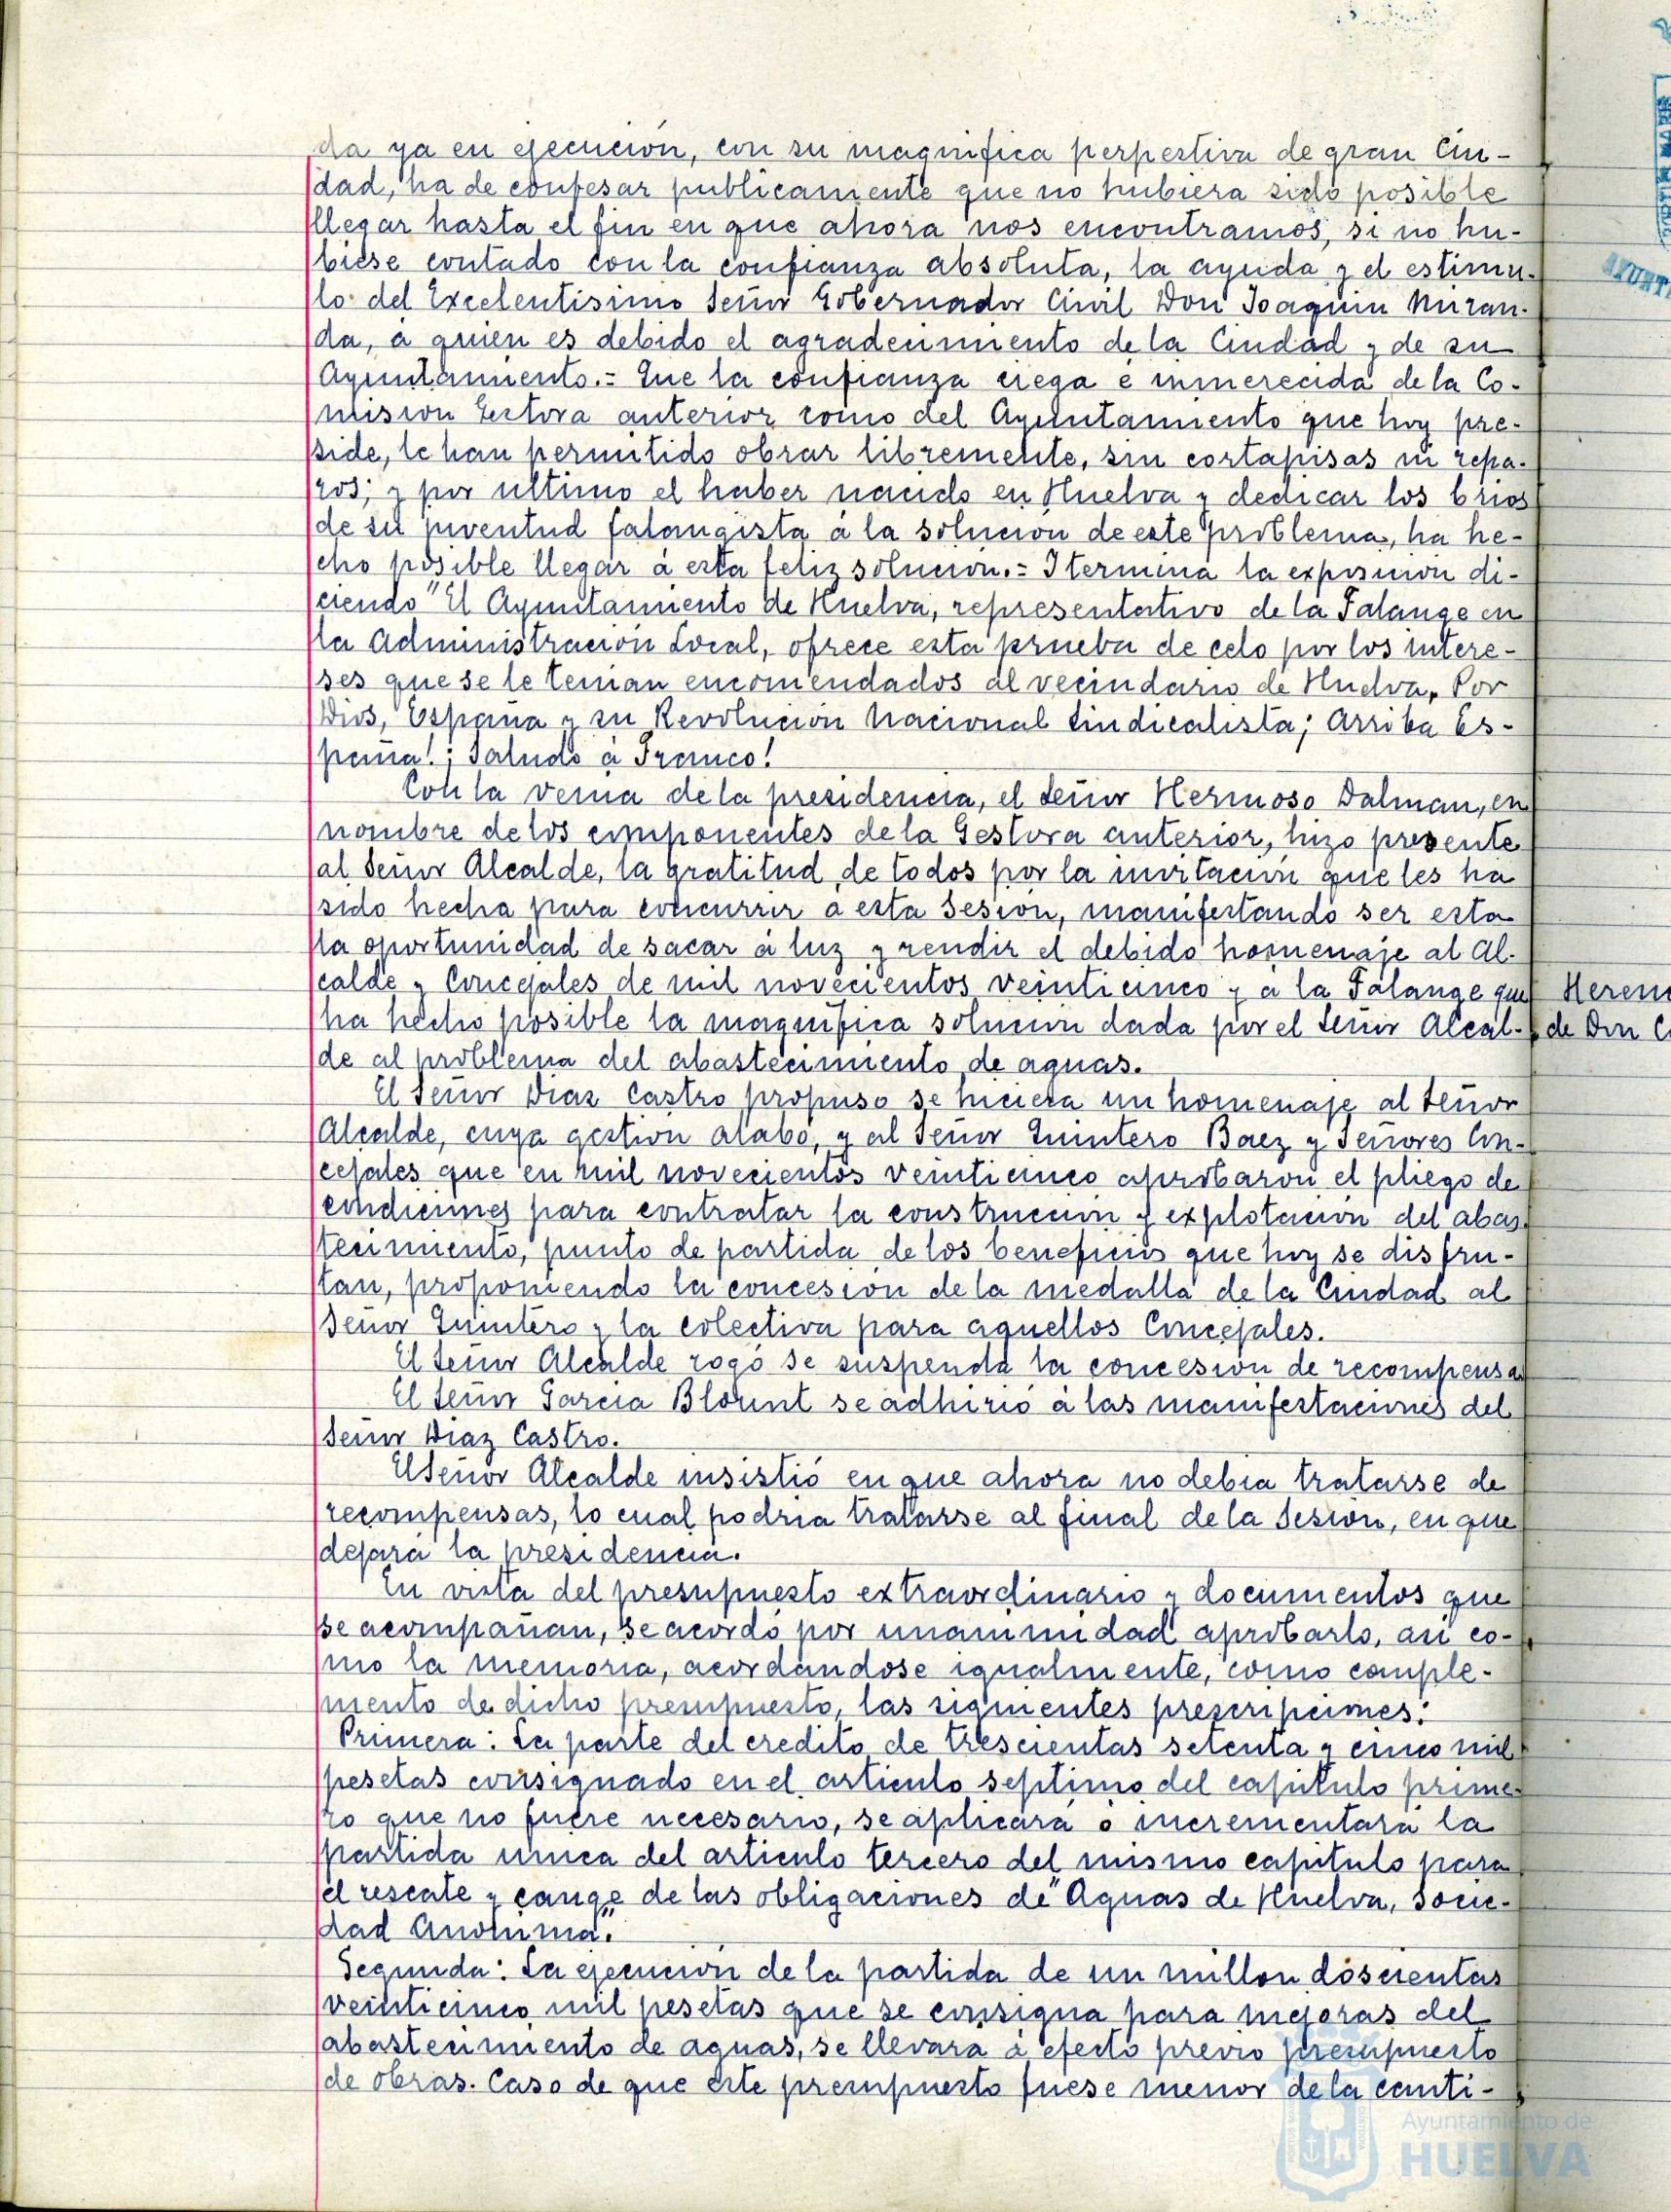 da ya en ejecución, con su magnifica perpestiva de gran Ciu-
dad, ha de confesar publicamente que no hubiera sido posible
llegar hasta el fin en que ahora nos encontramos, si no hu-
biese contado con la confianza absoluta, la ayuda y el estimu-
lo del Excelentisimo Señor Gobernador Civil Don Joaquin Miran-
da, a quien es debido el agradecimiento de la Ciudad y de su
Ayuntamiento.= Que la confianza ciega é inmerecida de la Co-
mision Gestora anterior como del Ayuntamiento que hoy pre-
side, le han permitido obrar libremente, sin cortapisas ni repa-
ros; y por ultimo el haber nacido en Huelva y dedicar los brios
de su juventud falangista á la solucion de este problema, ha he-
cho posible llegar á esta feliz solucion.= I termina la exposicion di-
ciendo "El Ayuntamiento de Huelva, representativo de la Falange en
la Administracion Local, ofrece esta prueba de celo por los intere-
ses que se le tenian encomendados al vecindario de Huelva, Por
Dios, España y su Revolucion Nacional Sindicalista; Arriba Es-
paña! ¡Saludo á Franco!
Con la venia de la presidencia, el Señor Hermoso Dalman, en
nombre de los componentes de la Gestora anterior, hizo presente
al Señor Alcalde, la gratitud de todos por la invitacion que les ha
sido hecha para concurrir a esta Sesion, manifestando ser esta
la oportunidad de sacar á luz y rendir el debido homenaje al Al-
calde y Concejales de mil novecientos veinticinco y a la Falange que
ha hecho posible la magnifica solucion dada por el Señor Alcal-
de al problema del abastecimiento de aguas.
El Señor Diaz Castro propuso se hiciera un homenaje al Señor
Alcalde, cuya gestion alabó, y al Señor Quintero Baez y Señores Con-
cejales que en mil novecientos veinticinco aprobaron el pliego de
condiciones para contratar la construccion y explotacion del abas-
tecimiento, punto de partida de los beneficios que hoy se disfru-
tan, proponiendo la concesion de la medalla de la Ciudad al
Señor Quintero y la colectiva para aquellos Concejales.
El Señor Alcalde rogó se suspenda la concesion de recompensas
El Señor Garcia Blount se adhirió á las manifestaciones del
Señor Diaz Castro.
El Señor Alcalde insistió en que ahora no debia tratarse de
recompensas, lo cual podria tratarse al final de la Sesion, en que
dejará la presidencia.
En vista del presupuesto extraordinario y documentos que
se acompañan, se acordó por unanimidad aprobarlo, asi co-
mo la memoria, acordandose igualmente, como comple-
mento de dicho presupuesto, las siguientes prescripciones:
Primera: La parte del credito de trescientas setenta y cinco mil
pesetas consignado en el articulo septimo del capitulo prime-
ro que no fuere necesario, se aplicará o incrementará la
partida unica del articulo tercero del mismo capitulo para
el rescate y cange de las obligaciones de "Aguas de Huelva, Socie-
dad Anonima".
Segunda: La ejecucion de la partida de un millon doscientas
veinticinco mil pesetas que se consigna para mejoras del
abastecimiento de aguas, se llevara á efecto previo presupuesto
de obras. Caso de que este presupuesto fuese menor de la canti-
Heren
de Don C
Ayuntamiento de
HUELVA